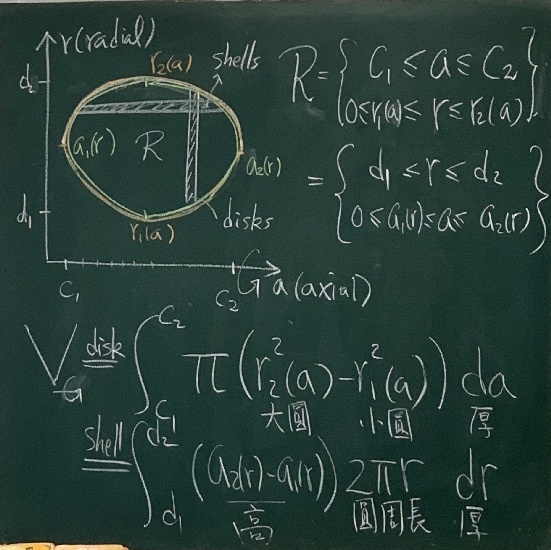 r(radial)
r₂(a)
shells
d₂
a₁(r)
R
a₂(r)
d₁
r₁(a)
disks
c₁
c₂
G a(axial)
R = { c₁ ≤ a ≤ c₂
0 ≤ r₁(a) ≤ r ≤ r₂(a) }
= { d₁ ≤ r ≤ d₂
0 ≤ a₁(r) ≤ a ≤ a₂(r) }
V_G disk= ∫_{c₁}^{c₂} π(r₂²(a) - r₁²(a)) da
大圓 小圓 厚
shell= ∫_{d₁}^{d₂} (a₂(r) - a₁(r)) 2πr dr
高 圓周長 厚